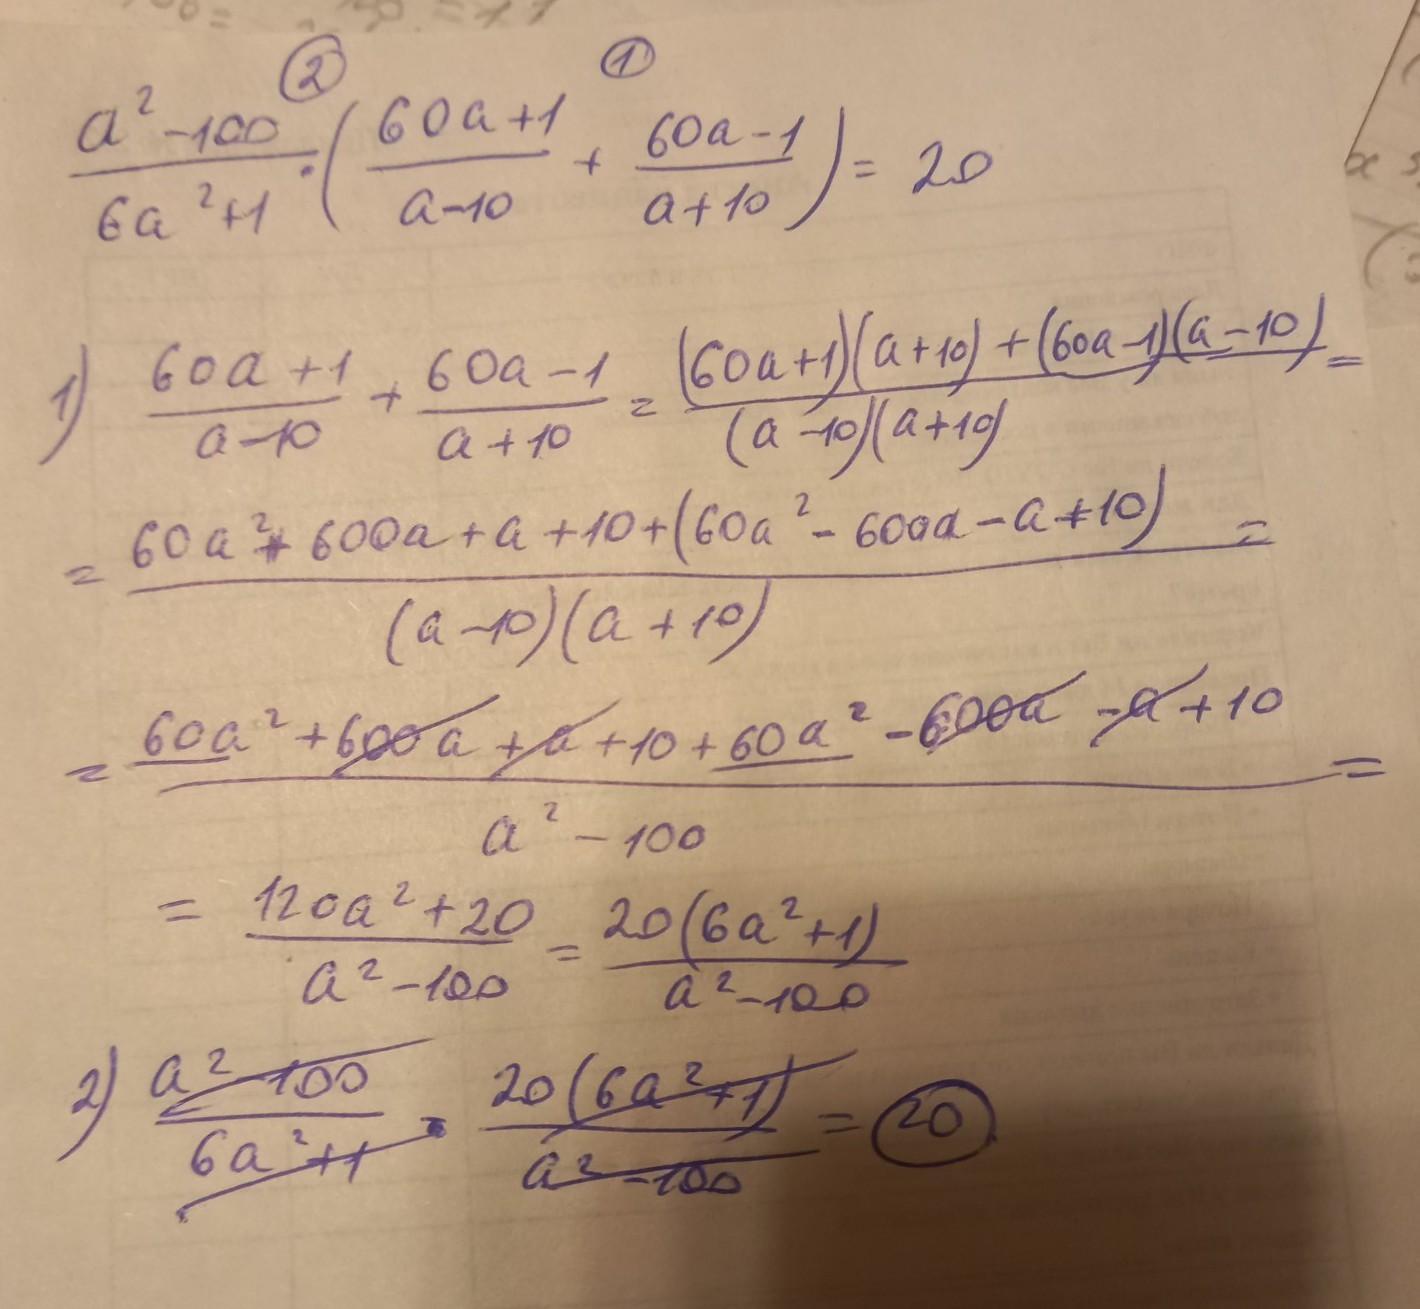 ② ①
(a² - 100)/(6a² + 1) · ((60a + 1)/(a - 10) + (60a - 1)/(a + 10)) = 20
1) (60a + 1)/(a - 10) + (60a - 1)/(a + 10) = ((60a + 1)(a + 10) + (60a - 1)(a - 10))/((a - 10)(a + 10)) =
= (60a² + 600a + a + 10 + (60a² - 600a - a + 10))/((a - 10)(a + 10)) =
= (60a² + 600a + a + 10 + 60a² - 600a - a + 10)/(a² - 100) =
= (120a² + 20)/(a² - 100) = 20(6a² + 1)/(a² - 100)
2) (a² - 100)/(6a² + 1) · 20(6a² + 1)/(a² - 100) = 20